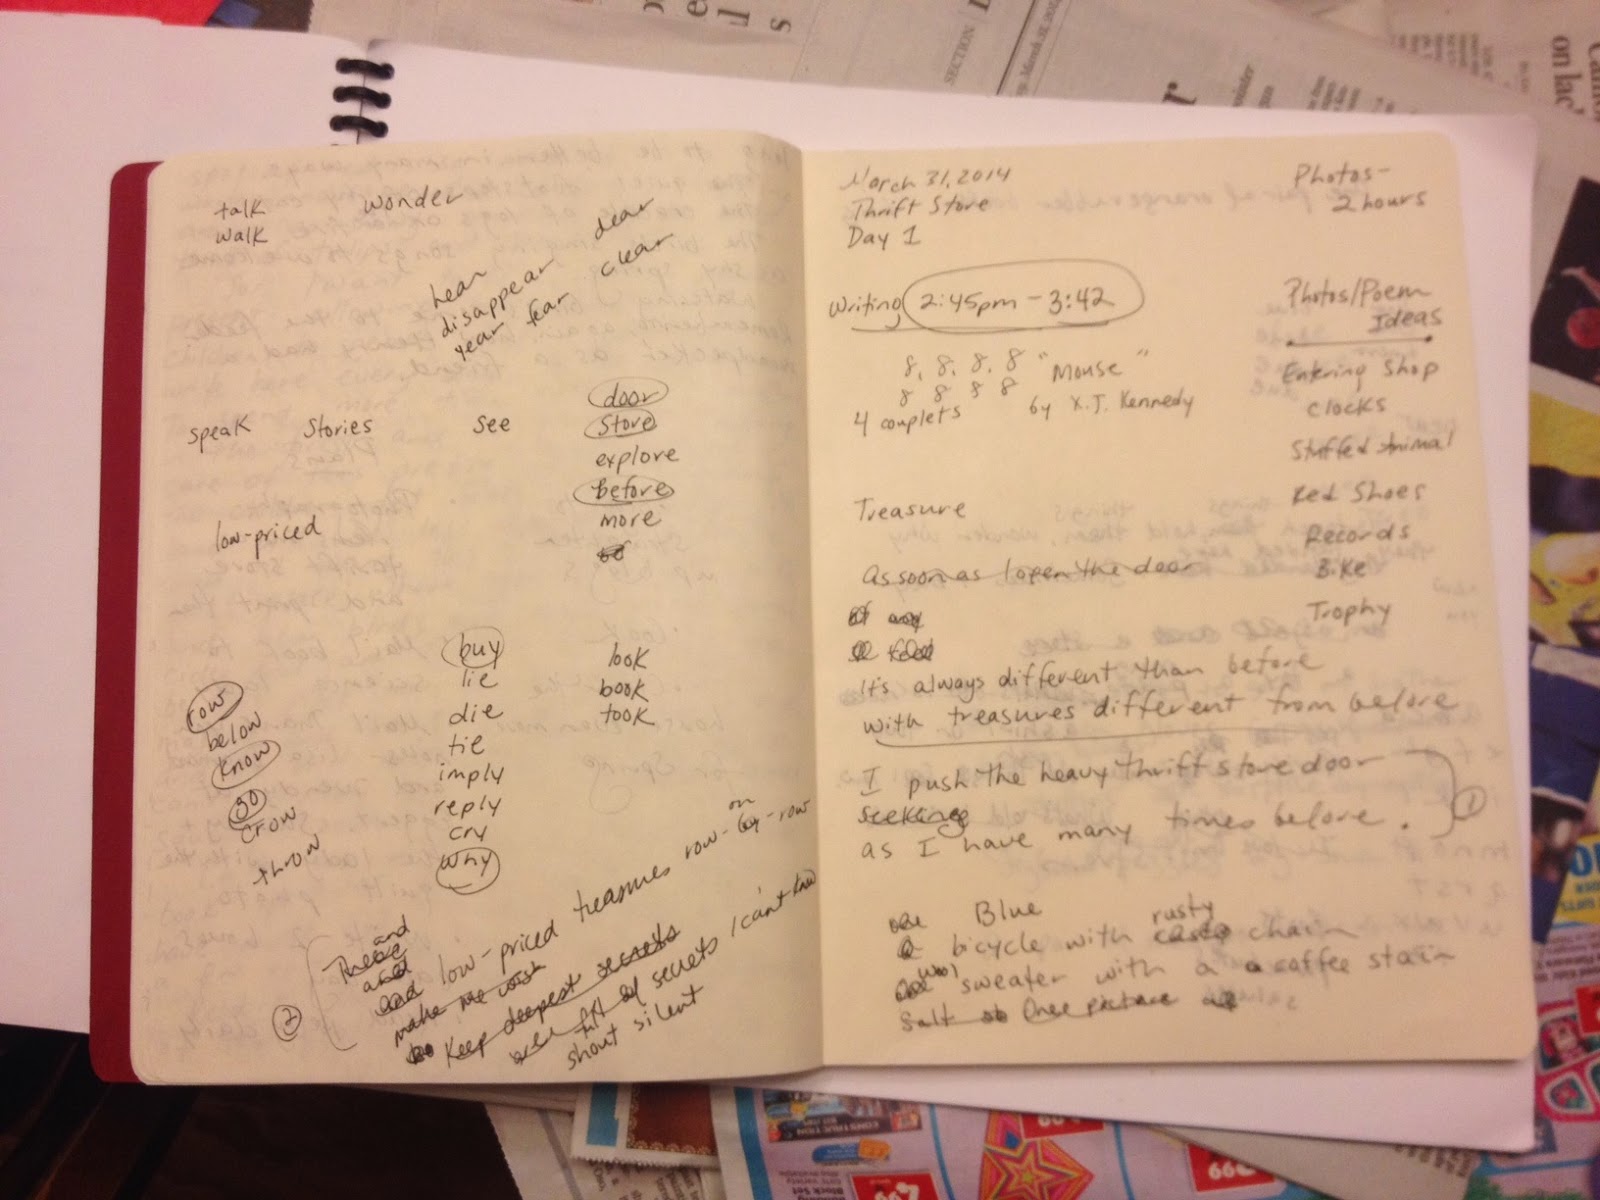 talk
walk
wonder
dear
clear
hear
disappear
year fear
speak
stories
see
door
store
explore
before
more
low-priced
buy
lie
die
tie
imply
reply
cry
why
look
book
took
row
below
know
go
crow
throw
and
There
and
and low-priced treasures row-by-row
on
make me wish
Keep deepest secrets
fill of secrets I can't know
shout silent
2
March 31, 2014
Thrift Store
Day 1
Photos-
2 hours
Writing 2:45pm - 3:42
8, 8, 8, 8 "Mouse"
8 8 8 8
4 couplets by X.J. Kennedy
Photos/Poem
Ideas
Entering Shop
Clocks
Stuffed Animal
Red Shoes
Records
Bike
Trophy
Treasure
As soon as I open the door
It's always different than before
with treasures different from before
I push the heavy thrift store door
seeking
as I have many times before.
1
Blue
rusty
bicycle with chain
wool
sweater with a coffee stain
Salt One picture
SECTION